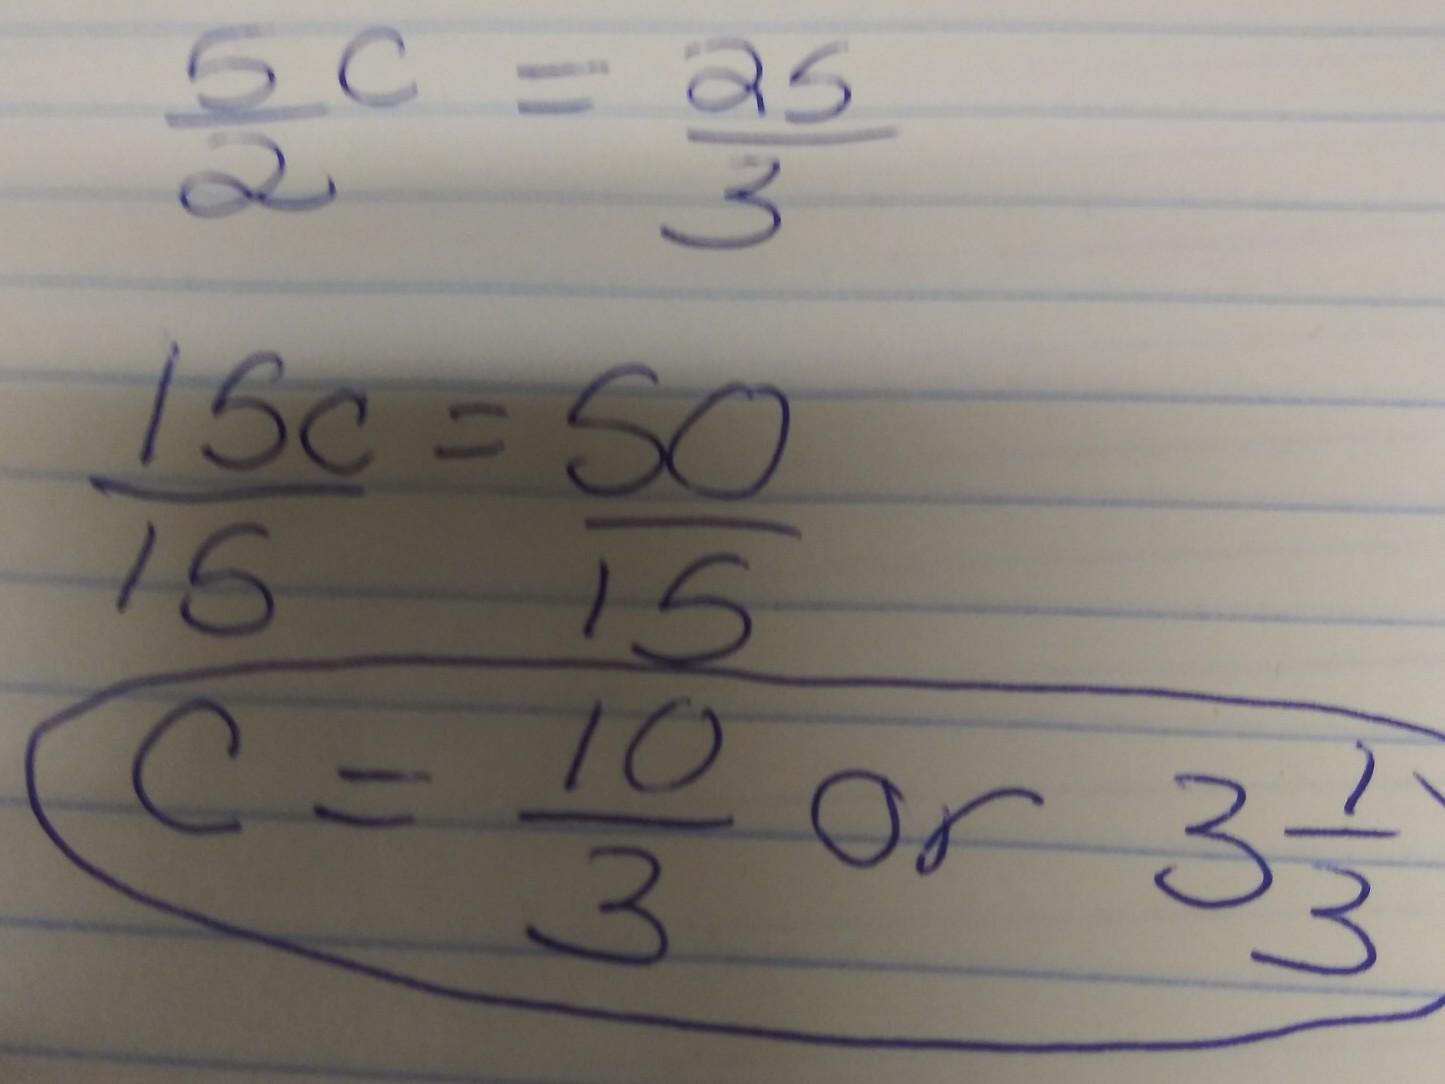 5/2 c = 25/3
15c/15 = 50/15
C = 10/3 or 3 1/3